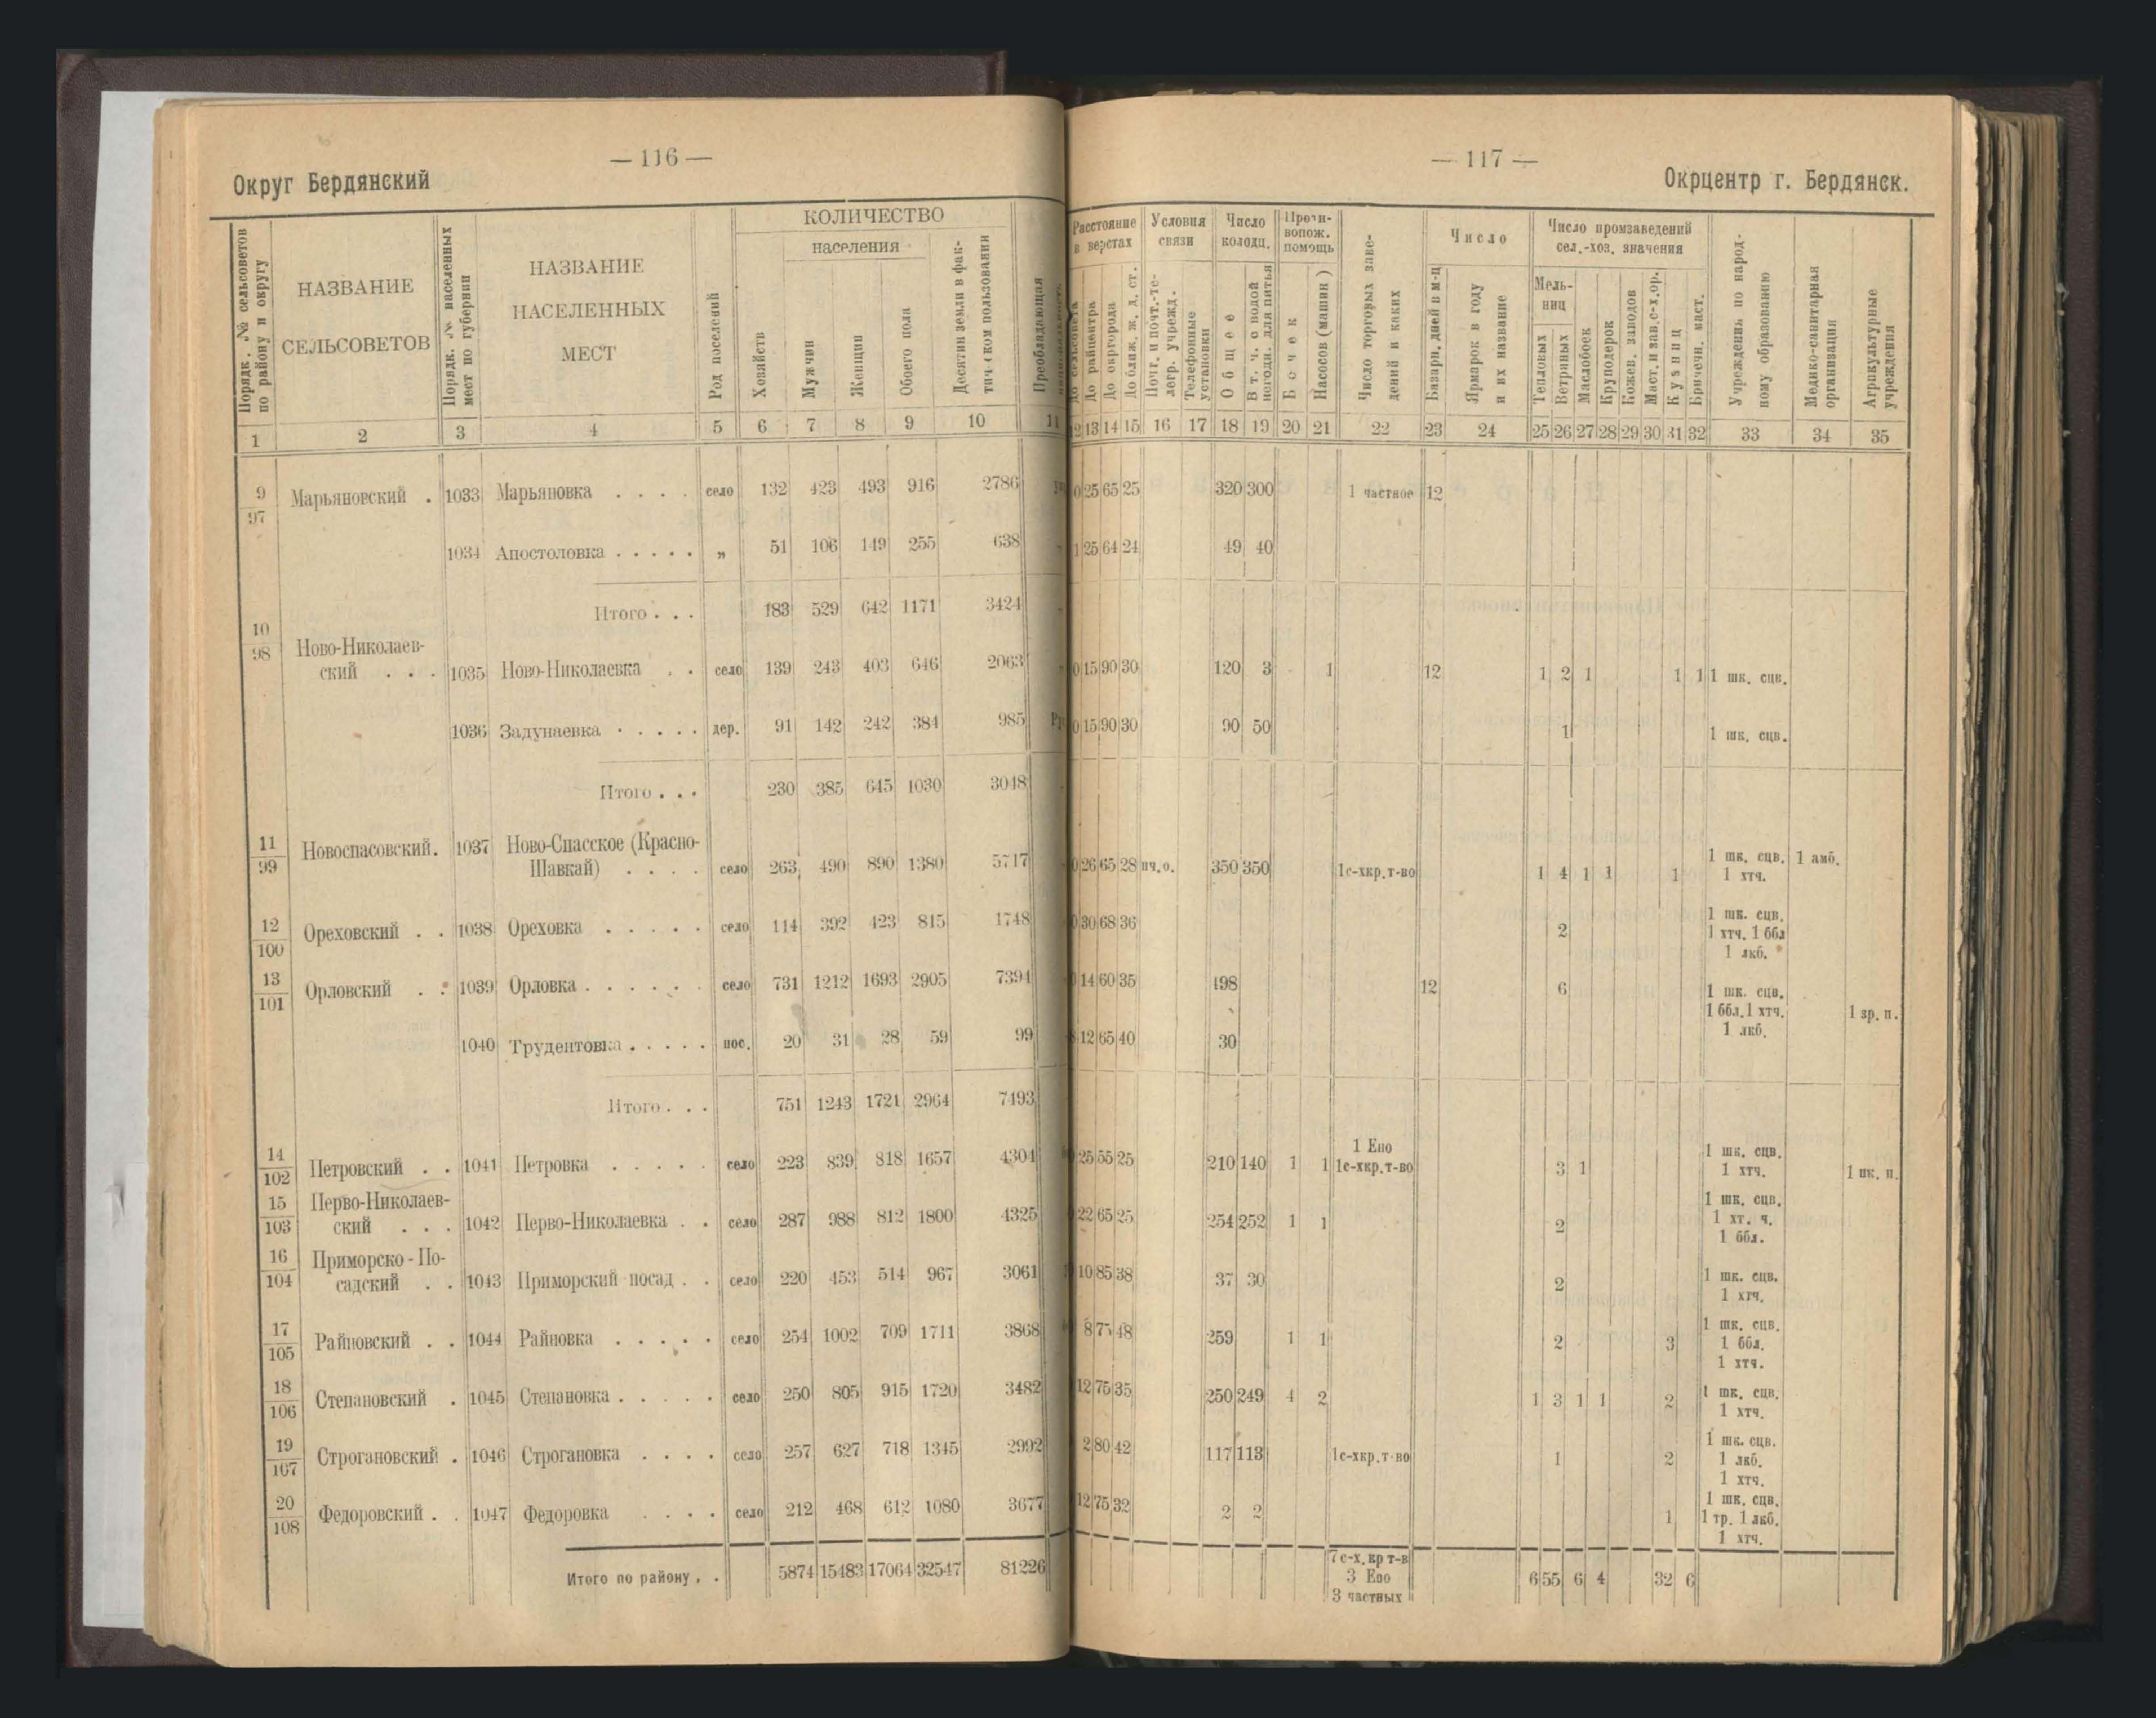 — 116 —
Округ Бердянский
Порядк. № сельсоветов по району и округу
НАЗВАНИЕ СЕЛЬСОВЕТОВ
Порядк. № населенных мест по губернии
НАЗВАНИЕ НАСЕЛЕННЫХ МЕСТ
Род поселений
КОЛИЧЕСТВО
населения
Хозяйств
Мужчин
Женщин
Обоего пола
Десятин земли в фактическом пользовании
Преобладающая
1 2 3 4 5 6 7 8 9 10 11
9/97 Марьяновский . 1033 Марьяновка . . . . село 132 423 493 916 2786
1034 Апостоловка . . . . . „ 51 106 149 255 638
Итого . . . 183 529 642 1171 3424
10/98 Ново-Николаев-
ский . . . 1035 Ново-Николаевка . . село 139 243 403 646 2063
1036 Задунаевка . . . . . дер. 91 142 242 384 985
Итого . . . 230 385 645 1030 3048
11/99 Новоспасовский. 1037 Ново-Спасское (Красно-
Шавкай) . . . . село 263 490 890 1380 5717
12/100 Ореховский . . 1038 Ореховка . . . . . село 114 392 423 815 1748
13/101 Орловский . . 1039 Орловка . . . . . . село 731 1212 1693 2905 7394
1040 Трудентовка . . . . . пос. 20 31 28 59 99
Итого . . . 751 1243 1721 2964 7493
14/102 Петровский . . 1041 Петровка . . . . . село 223 839 818 1657 4304
15/103 Перво-Николаев-
ский . . . 1042 Перво-Николаевка . . село 287 988 812 1800 4325
16/104 Приморско-По-
садский . . 1043 Приморский посад . . село 220 453 514 967 3061
17/105 Райновский . . 1044 Райновка . . . . . село 254 1002 709 1711 3868
18/106 Степановский . 1045 Степановка . . . . . село 250 805 915 1720 3482
19/107 Строгановский . 1046 Строгановка . . . . село 257 627 718 1345 2992
20/108 Федоровский . . 1047 Федоровка . . . . село 212 468 612 1080 3677
Итого по району . . 5874 15483 17064 32547 81226
— 117 —
Окрцентр г. Бердянск.
Расстояние в верстах
До райцентра
До окргорода
До ближ. ж. д. ст.
Условия связи
Почт. и почт.-телегр. учрежд.
Телефонные установки
Число колодц.
Общее
В т. ч. с водой негодн. для питья
Противопож. помощь
Бочек
Насосов (машин)
Число торговых заведений и каких
Число
Базарн. дней в м-ц
Ярмарок в году и их название
Число промзаведений сел.-хоз. значения
Мельниц
Тепловых
Ветряных
Маслобоек
Круподерок
Кожев. заводов
Маст. и зав. с-х. ор.
Кузниц
Бричечн. маст.
Учреждения по народному образованию
Медико-санитарная организация
Агрикультурные учреждения
13 14 15 16 17 18 19 20 21 22 23 24 25 26 27 28 29 30 31 32 33 34 35
0 25 65 25 320 300 1 частное 12
1 25 64 24 49 40
0 15 90 30 120 3 1 12 1 2 1 1 1 1 шк. сцв.
0 15 90 30 90 50 1 1 шк. сцв.
0 26 65 28 пч.о. 350 350 1с-хкр.т-во 1 4 1 1 1 1 шк. сцв. 1 хтч. 1 амб.
0 30 68 36 2 1 шк. сцв. 1 хтч. 1 ббл 1 лкб.
14 60 35 198 12 6 1 шк. сцв. 1 ббл. 1 хтч. 1 лкб. 1 зр. п.
12 65 40 30
25 55 25 210 140 1 1 1 Епо 1с-хкр.т-во 3 1 1 шк. сцв. 1 хтч. 1 пк. п.
22 65 25 254 252 1 1 2 1 шк. сцв. 1 хт. ч. 1 ббл.
10 85 38 37 30 2 1 шк. сцв. 1 хтч.
8 75 48 259 1 1 2 3 1 шк. сцв. 1 ббл. 1 хтч.
12 75 35 250 249 4 2 1 3 1 1 2 1 шк. сцв. 1 хтч.
2 80 42 117 113 1с-хкр.т-во 1 2 1 шк. сцв. 1 лкб. 1 хтч.
12 75 32 2 2 1 1 шк. сцв. 1 тр. 1 лкб. 1 хтч.
7 с-х. кр т-в 3 Епо 3 частных 6 55 6 4 32 6